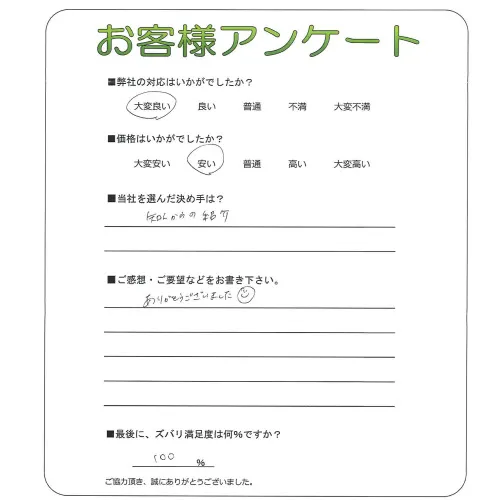 お客様アンケート
■弊社の対応はいかがでしたか？
大変良い 良い 普通 不満 大変不満
■価格はいかがでしたか？
大変安い 安い 普通 高い 大変高い
■当社を選んだ決め手は？
の紹介
■ご感想・ご要望などをお書き下さい。
ありがとうございました
■最後に、ズバリ満足度は何%ですか？
100 %
ご協力頂き、誠にありがとうございました。